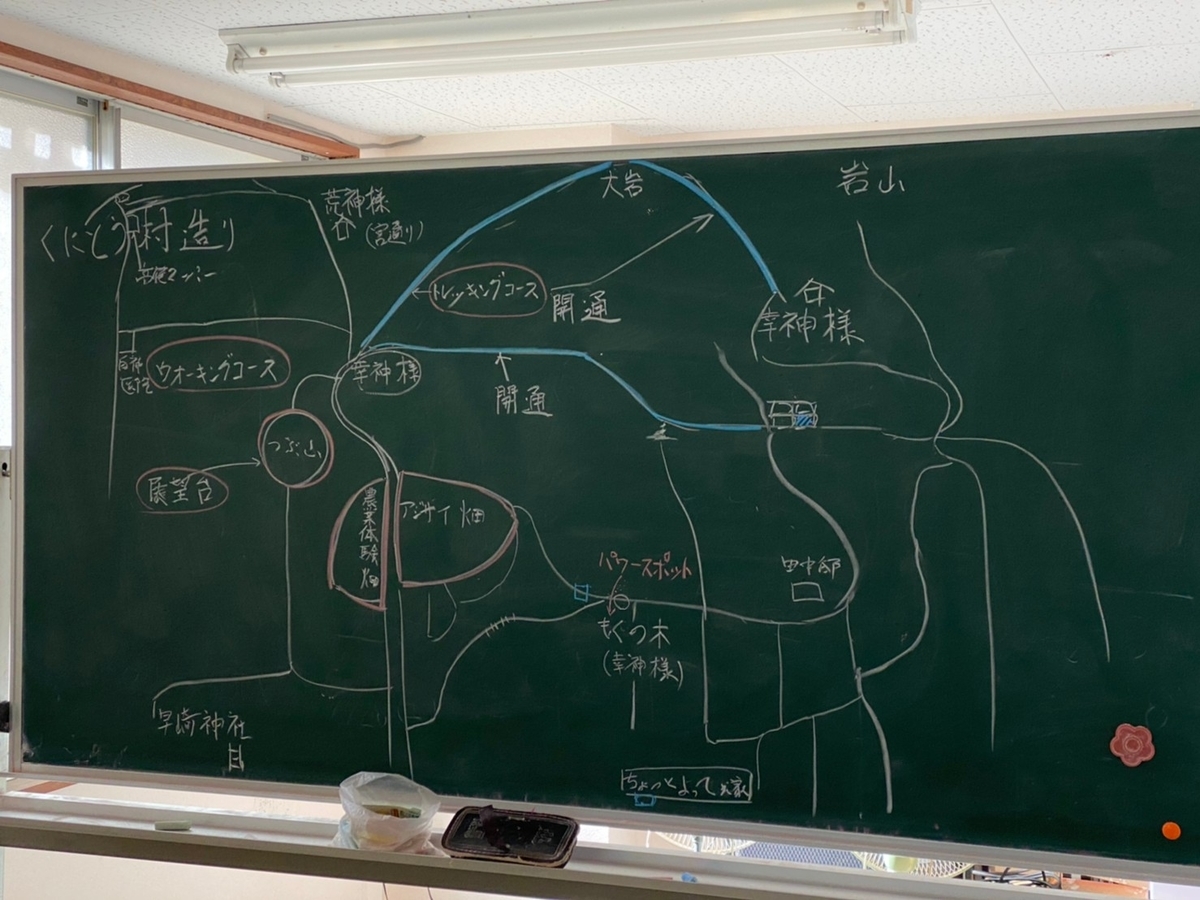 くにとう村造り
荒神様
(宮通り)
大岩
岩山
トレッキングコース
開通
幸神様
医院
ウオーキングコース
幸神様
開通
つぶ山
展望台
農業体験畑
アジサイ畑
パワースポット
田中邸
もぐの木
(幸神様)
早崎神社
ちょっとよって